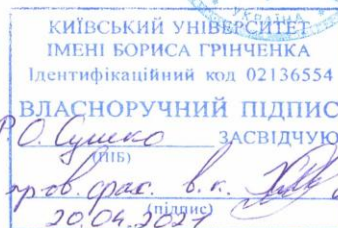 УКРАЇНА
КИЇВСЬКИЙ УНІВЕРСИТЕТ
ІМЕНІ БОРИСА ГРІНЧЕНКА
Ідентифікаційний код 02136554
ВЛАСНОРУЧНИЙ ПІДПИС
Р.О. Сушко ЗАСВІДЧУЮ
(ПІБ)
пров. фах. в.к.
(підпис)
20.04.2021